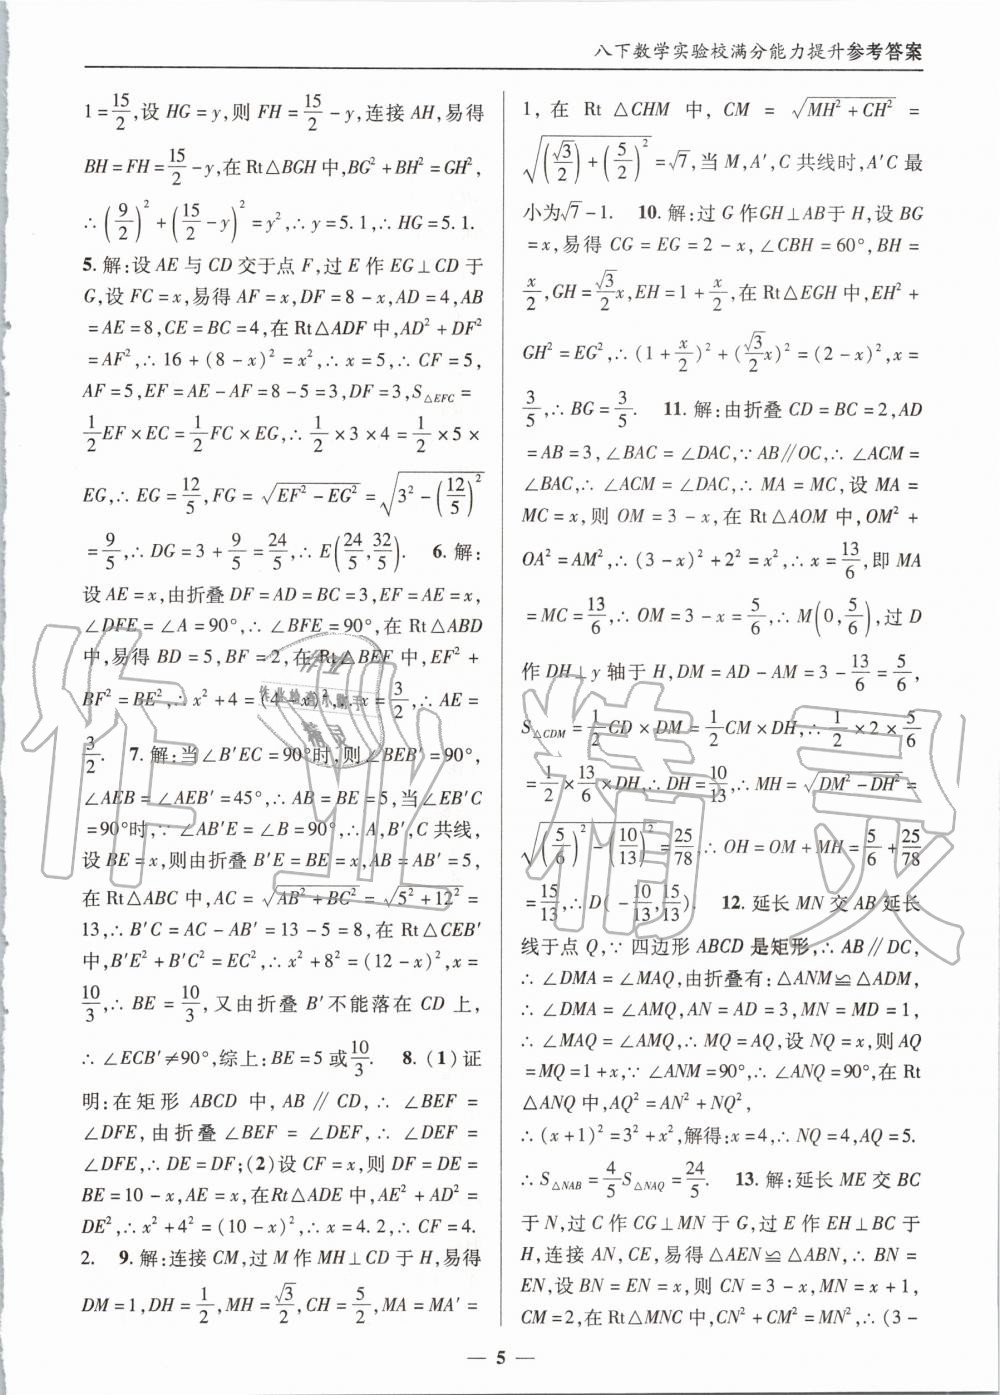 八下数学实验校满分能力提升参考答案
1 = 15/2,设 HG = y,则 FH = 15/2 − y,连接 AH,易得
BH = FH = 15/2 − y,在 Rt△BGH 中,BG² + BH² = GH²,
∴ (9/2)² + (15/2 − y)² = y²,∴ y = 5.1,∴ HG = 5.1.
5. 解:设 AE 与 CD 交于点 F,过 E 作 EG⊥CD 于
G,设 FC = x,易得 AF = x,DF = 8 − x,AD = 4,AB
= AE = 8,CE = BC = 4,在 Rt△ADF 中,AD² + DF²
= AF²,∴ 16 + (8 − x)² = x²,∴ x = 5,∴ CF = 5,
AF = 5,EF = AE − AF = 8 − 5 = 3,DF = 3,S△EFC =
1/2 EF × EC = 1/2 FC × EG,∴ 1/2 × 3 × 4 = 1/2 × 5 ×
EG,∴ EG = 12/5,FG = √(EF² − EG²) = √(3² − (12/5)²)
= 9/5,∴ DG = 3 + 9/5 = 24/5,∴ E(24/5, 32/5). 6. 解:
设 AE = x,由折叠 DF = AD = BC = 3,EF = AE = x,
∠DFE = ∠A = 90°,∴ ∠BFE = 90°,在 Rt△ABD
中,易得 BD = 5,BF = 2,在 Rt△BEF 中,EF² +
BF² = BE²,∴ x² + 4 = (4 − x)²,∴ x = 3/2,∴ AE =
3/2. 7. 解:当∠B′EC = 90°时,则∠BEB′ = 90°,
∠AEB = ∠AEB′ = 45°,∴ AB = BE = 5,当∠EB′C
= 90°时,∵ ∠AB′E = ∠B = 90°,∴ A,B′,C 共线,
设 BE = x,则由折叠 B′E = BE = x,AB = AB′ = 5,
在 Rt△ABC 中,AC = √(AB² + BC²) = √(5² + 12²) =
13,∴ B′C = AC − AB′ = 13 − 5 = 8,在 Rt△CEB′
中,B′E² + B′C² = EC²,∴ x² + 8² = (12 − x)²,x =
10/3,∴ BE = 10/3,又由折叠 B′不能落在 CD 上,
∴ ∠ECB′≠90°,综上:BE = 5 或 10/3. 8. (1)证
明:在矩形 ABCD 中,AB∥CD,∴ ∠BEF =
∠DFE,由折叠∠BEF = ∠DEF,∴ ∠DEF =
∠DFE,∴ DE = DF;(2)设 CF = x,则 DF = DE =
BE = 10 − x,AE = x,在Rt△ADE 中,AE² + AD² =
DE²,∴ x² + 4² = (10 − x)²,∴ x = 4.2,∴ CF = 4.
2. 9. 解:连接 CM,过 M 作 MH⊥CD 于 H,易得
DM = 1,DH = 1/2,MH = √3/2,CH = 5/2,MA = MA′ =
1,在 Rt△CHM 中,CM = √(MH² + CH²) =
√((√3/2)² + (5/2)²) = √7,当 M,A′,C 共线时,A′C 最
小为√7 − 1. 10. 解:过 G 作GH⊥AB于 H,设 BG
= x,易得 CG = EG = 2 − x,∠CBH = 60°,BH =
x/2,GH = √3/2 x,EH = 1 + x/2,在 Rt△EGH 中,EH² +
GH² = EG²,∴ (1 + x/2)² + (√3/2 x)² = (2 − x)²,x =
3/5,∴ BG = 3/5. 11. 解:由折叠 CD = BC = 2,AD
= AB = 3,∠BAC = ∠DAC,∵ AB∥OC,∴ ∠ACM =
∠BAC,∴ ∠ACM = ∠DAC,∴ MA = MC,设 MA =
MC = x,则 OM = 3 − x,在 Rt△AOM 中,OM² +
OA² = AM²,∴ (3 − x)² + 2² = x²,∴ x = 13/6,即 MA
= MC = 13/6,∴ OM = 3 − x = 5/6,∴ M(0, 5/6),过 D
作 DH⊥y 轴于 H,DM = AD − AM = 3 − 13/6 = 5/6,
S△CDM = 1/2 CD × DM = 1/2 CM × DH,∴ 1/2 × 2 × 5/6
= 1/2 × 13/6 × DH,∴ DH = 10/13,∴ MH = √(DM² − DH²) =
√((5/6)² − (10/13)²) = 25/78,∴ OH = OM + MH = 5/6 + 25/78
= 15/13,∴ D(−10/13, 15/13). 12. 延长 MN 交 AB 延长
线于点 Q,∵ 四边形 ABCD 是矩形,∴ AB∥DC,
∴ ∠DMA = ∠MAQ,由折叠有:△ANM≌△ADM,
∴ ∠DMA = ∠AMQ,AN = AD = 3,MN = MD = 1,
∴ ∠MAQ = ∠AMQ,∴ MQ = AQ,设 NQ = x,则 AQ
= MQ = 1 + x,∵ ∠ANM = 90°,∴ ∠ANQ = 90°,在 Rt
△ANQ 中,AQ² = AN² + NQ²,
∴ (x + 1)² = 3² + x²,解得:x = 4,∴ NQ = 4,AQ = 5.
∴ S△NAB = 4/5 S△NAQ = 24/5. 13. 解:延长 ME 交 BC
于 N,过 C 作 CG⊥MN 于 G,过 E 作 EH⊥BC 于
H,连接 AN,CE,易得△AEN≌△ABN,∴ BN =
EN,设 BN = EN = x,则 CN = 3 − x,MN = x + 1,
CM = 2,在 Rt△MNC 中,CN² + CM² = MN²,∴ (3 −
— 5 —
作业精灵